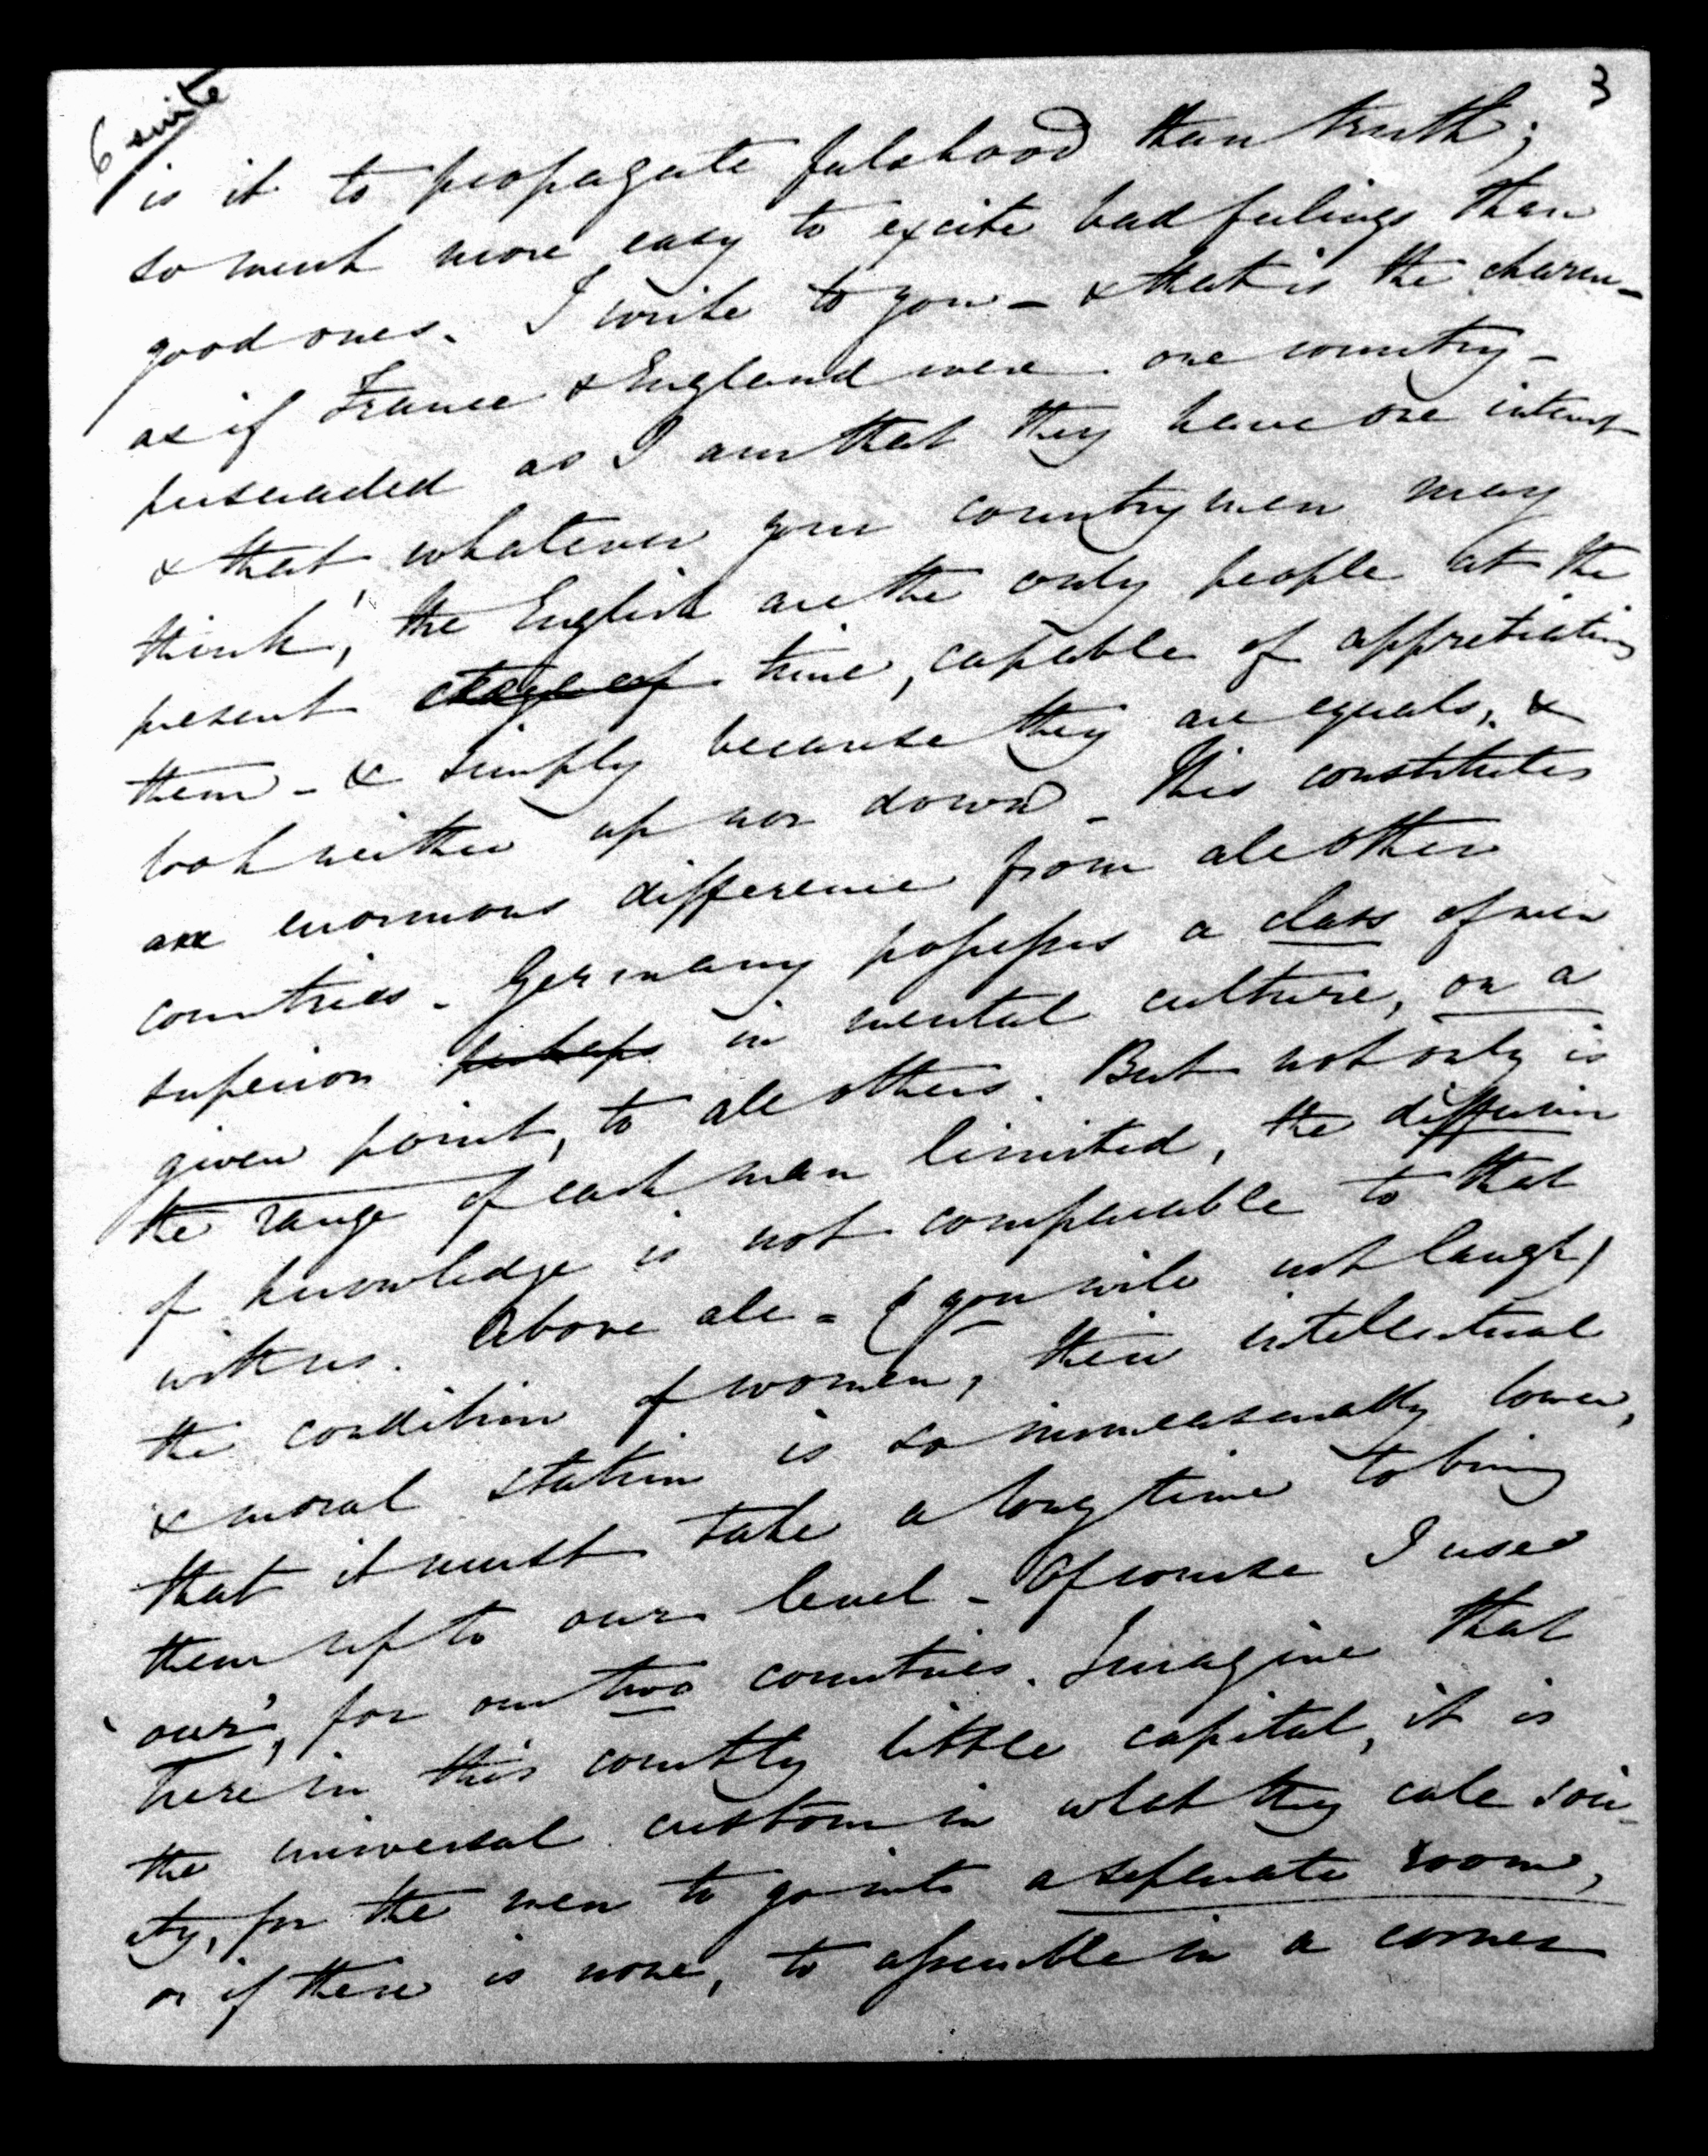 6 suite
3
is it to propagate falsehood than truth;
so much more easy to excite bad feelings than
good ones. I write to you – & that is the charm –
as if France & England were one country –
persuaded as I am that they have one interest
& that, whatever your countrymen may
think, the English are the only people at the
present stage of time, capable of appretiating
them – & simply because they are equals, &
look neither up nor down – This constitutes
an enormous difference from all other
countries – Germany possesses a class of men
superior perhaps in mental culture, on a
given point, to all others. But not only is
the range of each man limited, the diffusion
of knowledge is not comparable to that
with us. Above all – (you will not laugh)
the condition of women, their intellectual
& moral station is so immeasurably lower,
that it must take a long time to bring
them up to our level – Of course I use
'our', for our two countries. Imagine that
here in this courtly little capital, it is
the universal custom in what they call soci-
ety, for the men to go into a separate room,
or if there is none, to assemble in a corner